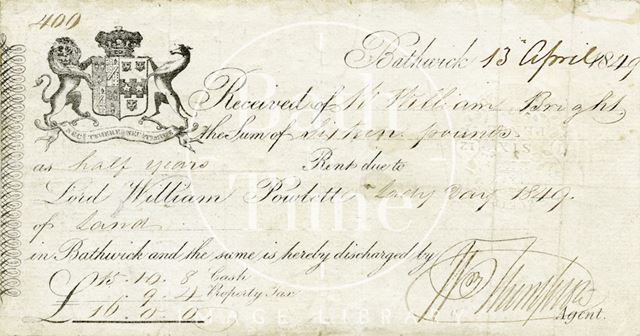 400
Bathwick 13 April 1849
Received of Mr William Bright
the Sum of sixteen pounds
as half years Rent due to
Lord William Powlett Lady Day 1849.
of Land
in Bathwick and the same is hereby discharged by
£ 15. 10. 8 Cash
9. 4 Property Tax
£ 16. 0. 0
Agent.
Bath in Time
IMAGE LIBRARY